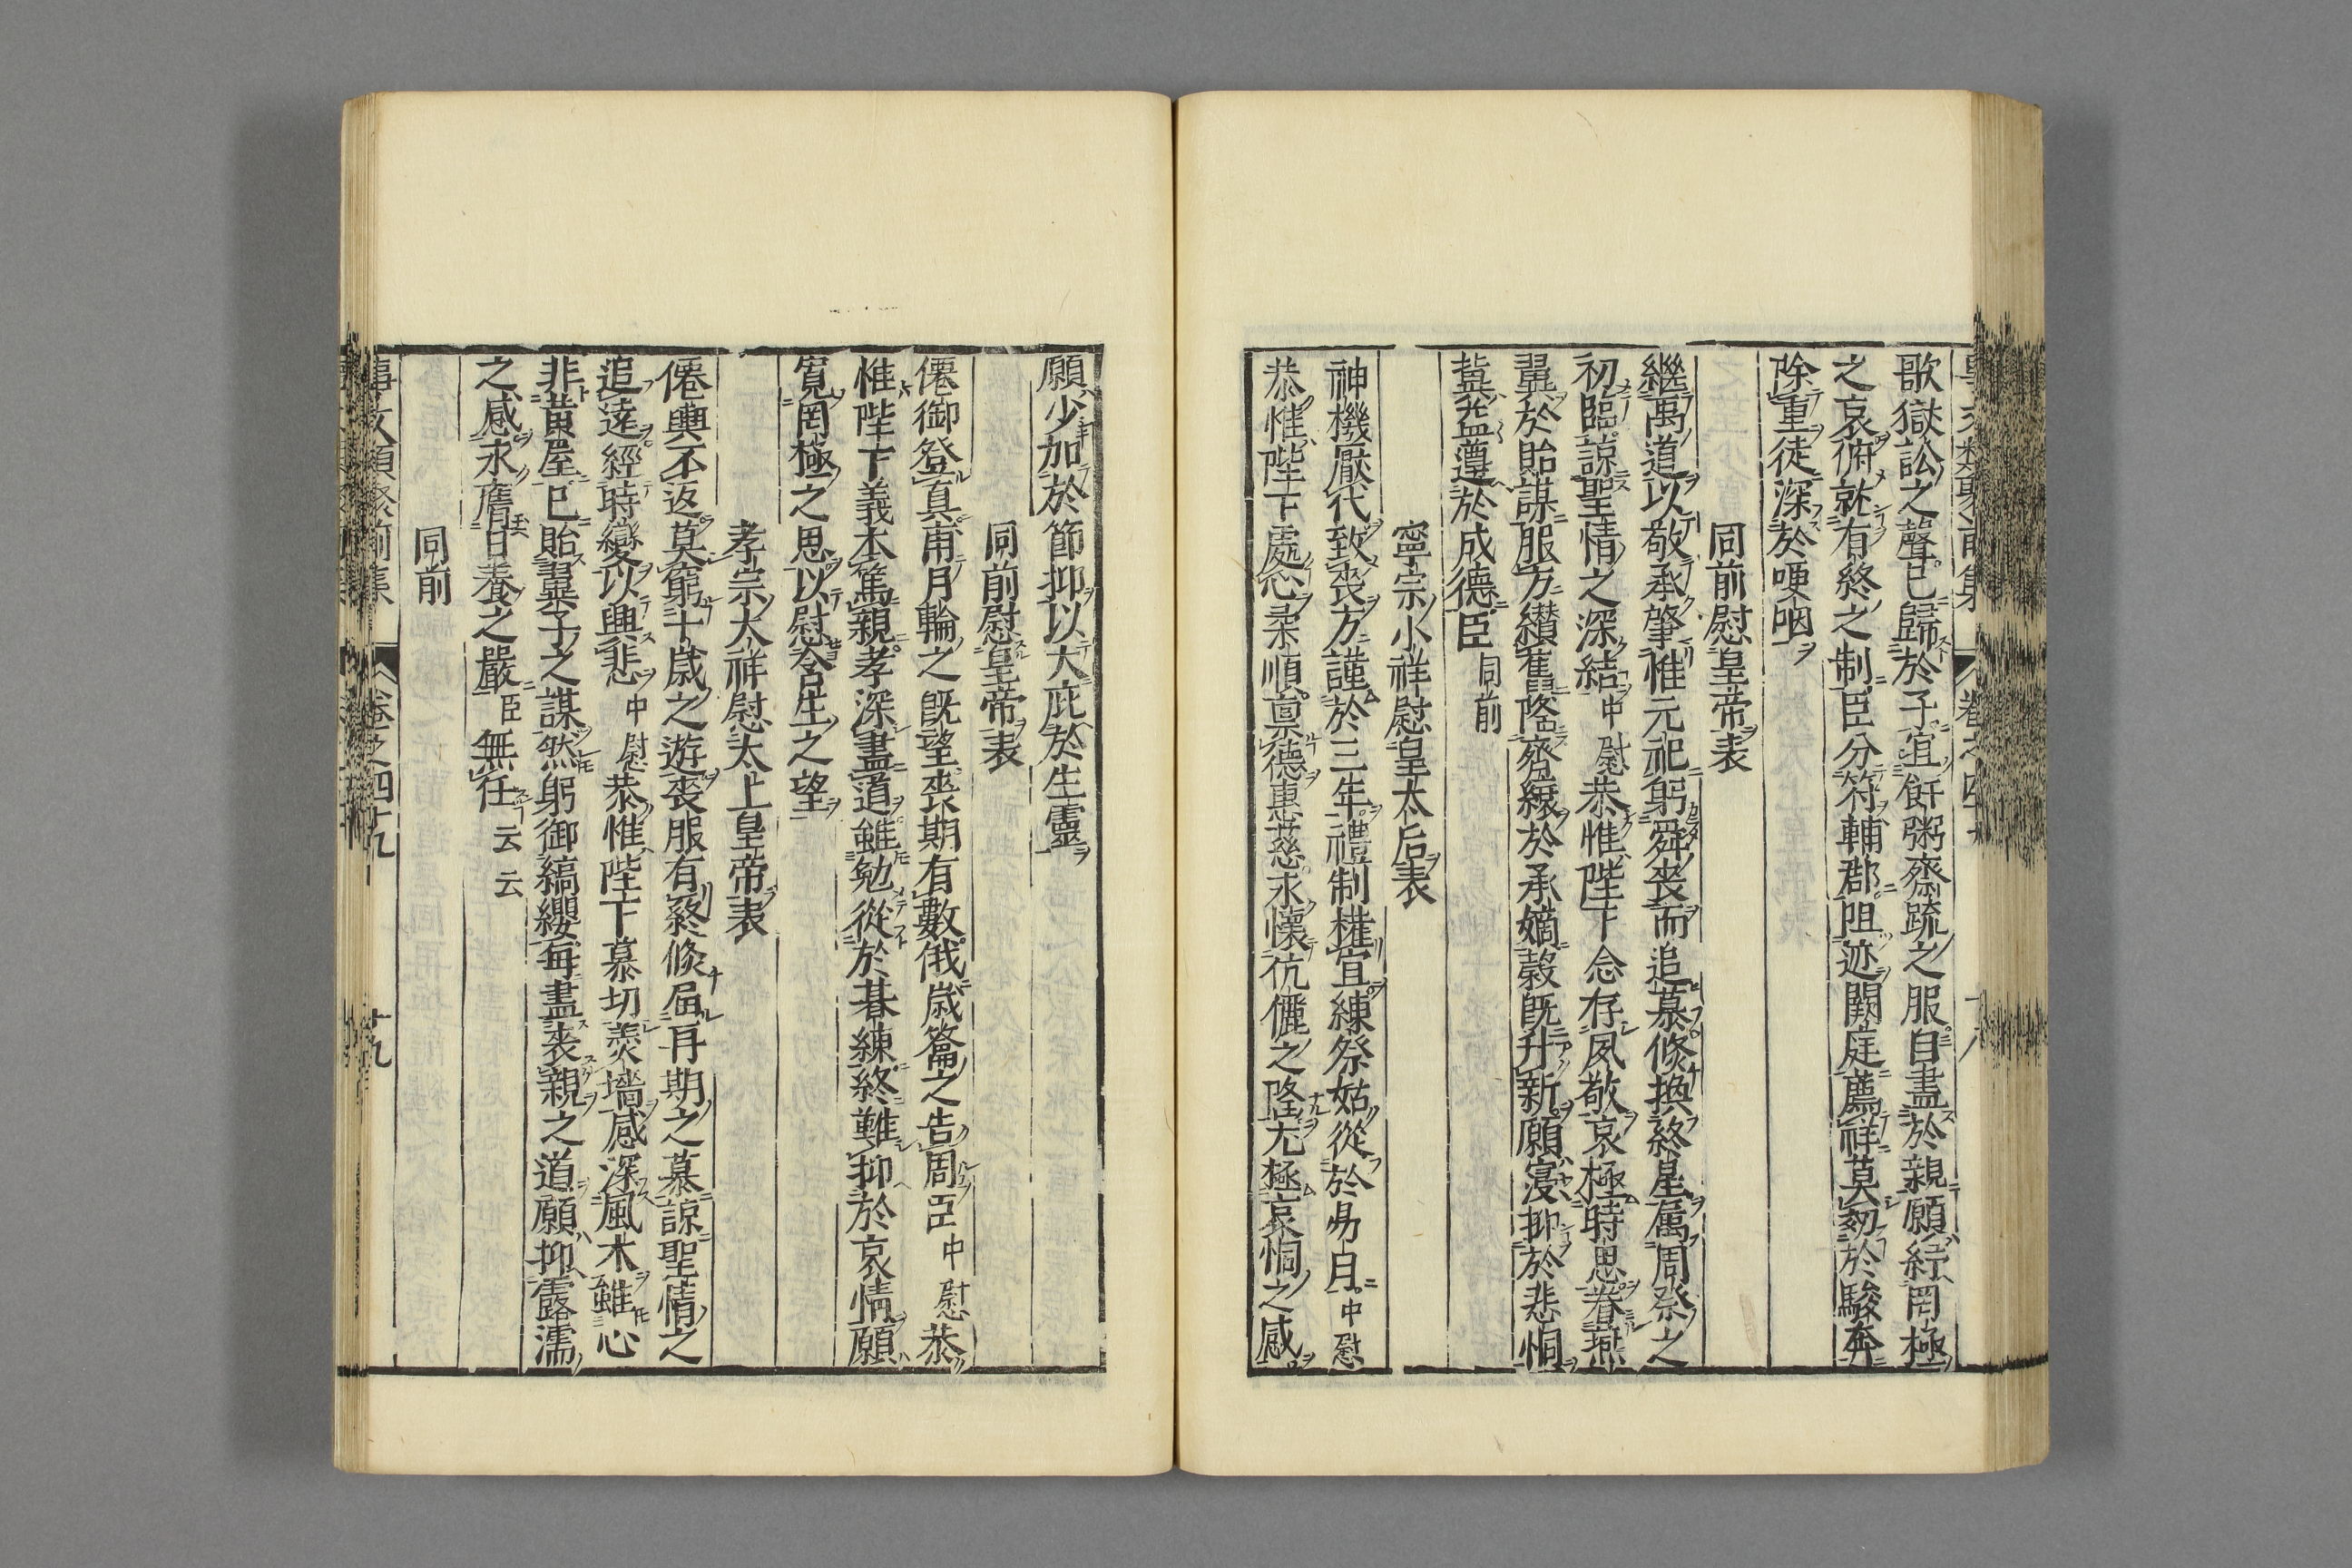 歌獄訟之聲已歸於子宜飦粥齋疏之服自盡於親願紓罔極
之哀俯就有終之制臣分符輔郡阻迹闕庭薦祥莫芻於駿奔
除重徒深於哽咽
同前慰皇帝表
繼禹道以敬承肇惟元祀躬舜喪而追慕倐換終星属周祭之
初臨諒聖情之深結中慰恭惟陛下念存夙敬哀極時思眷燕
翼於貽謀服方纉舊隆齊縗於承嫡穀旣升新願寖抑於悲恫
冀益遵於成德臣同前
寧宗小祥慰皇太后表
神機厭代致喪方謹於三年禮制權宜練祭姑從於昜月中慰
恭惟陛下處心柔順禀德惠慈永懷伉儷之隆尤極哀恫之感
願少加於節抑以大庇於生靈
同前慰皇帝表
僊御登真甫月輪之旣望喪期有數俄歲籥之告周臣中慰恭
惟陛下義本篤親孝深盡道雖勉從於碁練終難抑於哀情願
寬罔極之思以慰含生之望
孝宗大祥慰太上皇帝表
僊輿不返莫窮十歲之遊喪服有終倐屆再期之慕諒聖情之
追遠經時變以興悲中慰恭惟陛下慕切羹墻感深風木雖心
非黃屋已貽翼子之謀然躬御縞纓每盡喪親之道願抑露濡
之感永膺日養之嚴臣無任云云
同前
事文類聚前集
卷之四十九
廿九